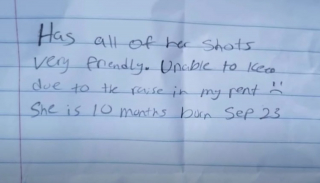 Has all of her Shots
very friendly. Unable to Keep
due to the raise in my rent :(
She is 10 months born Sep 23